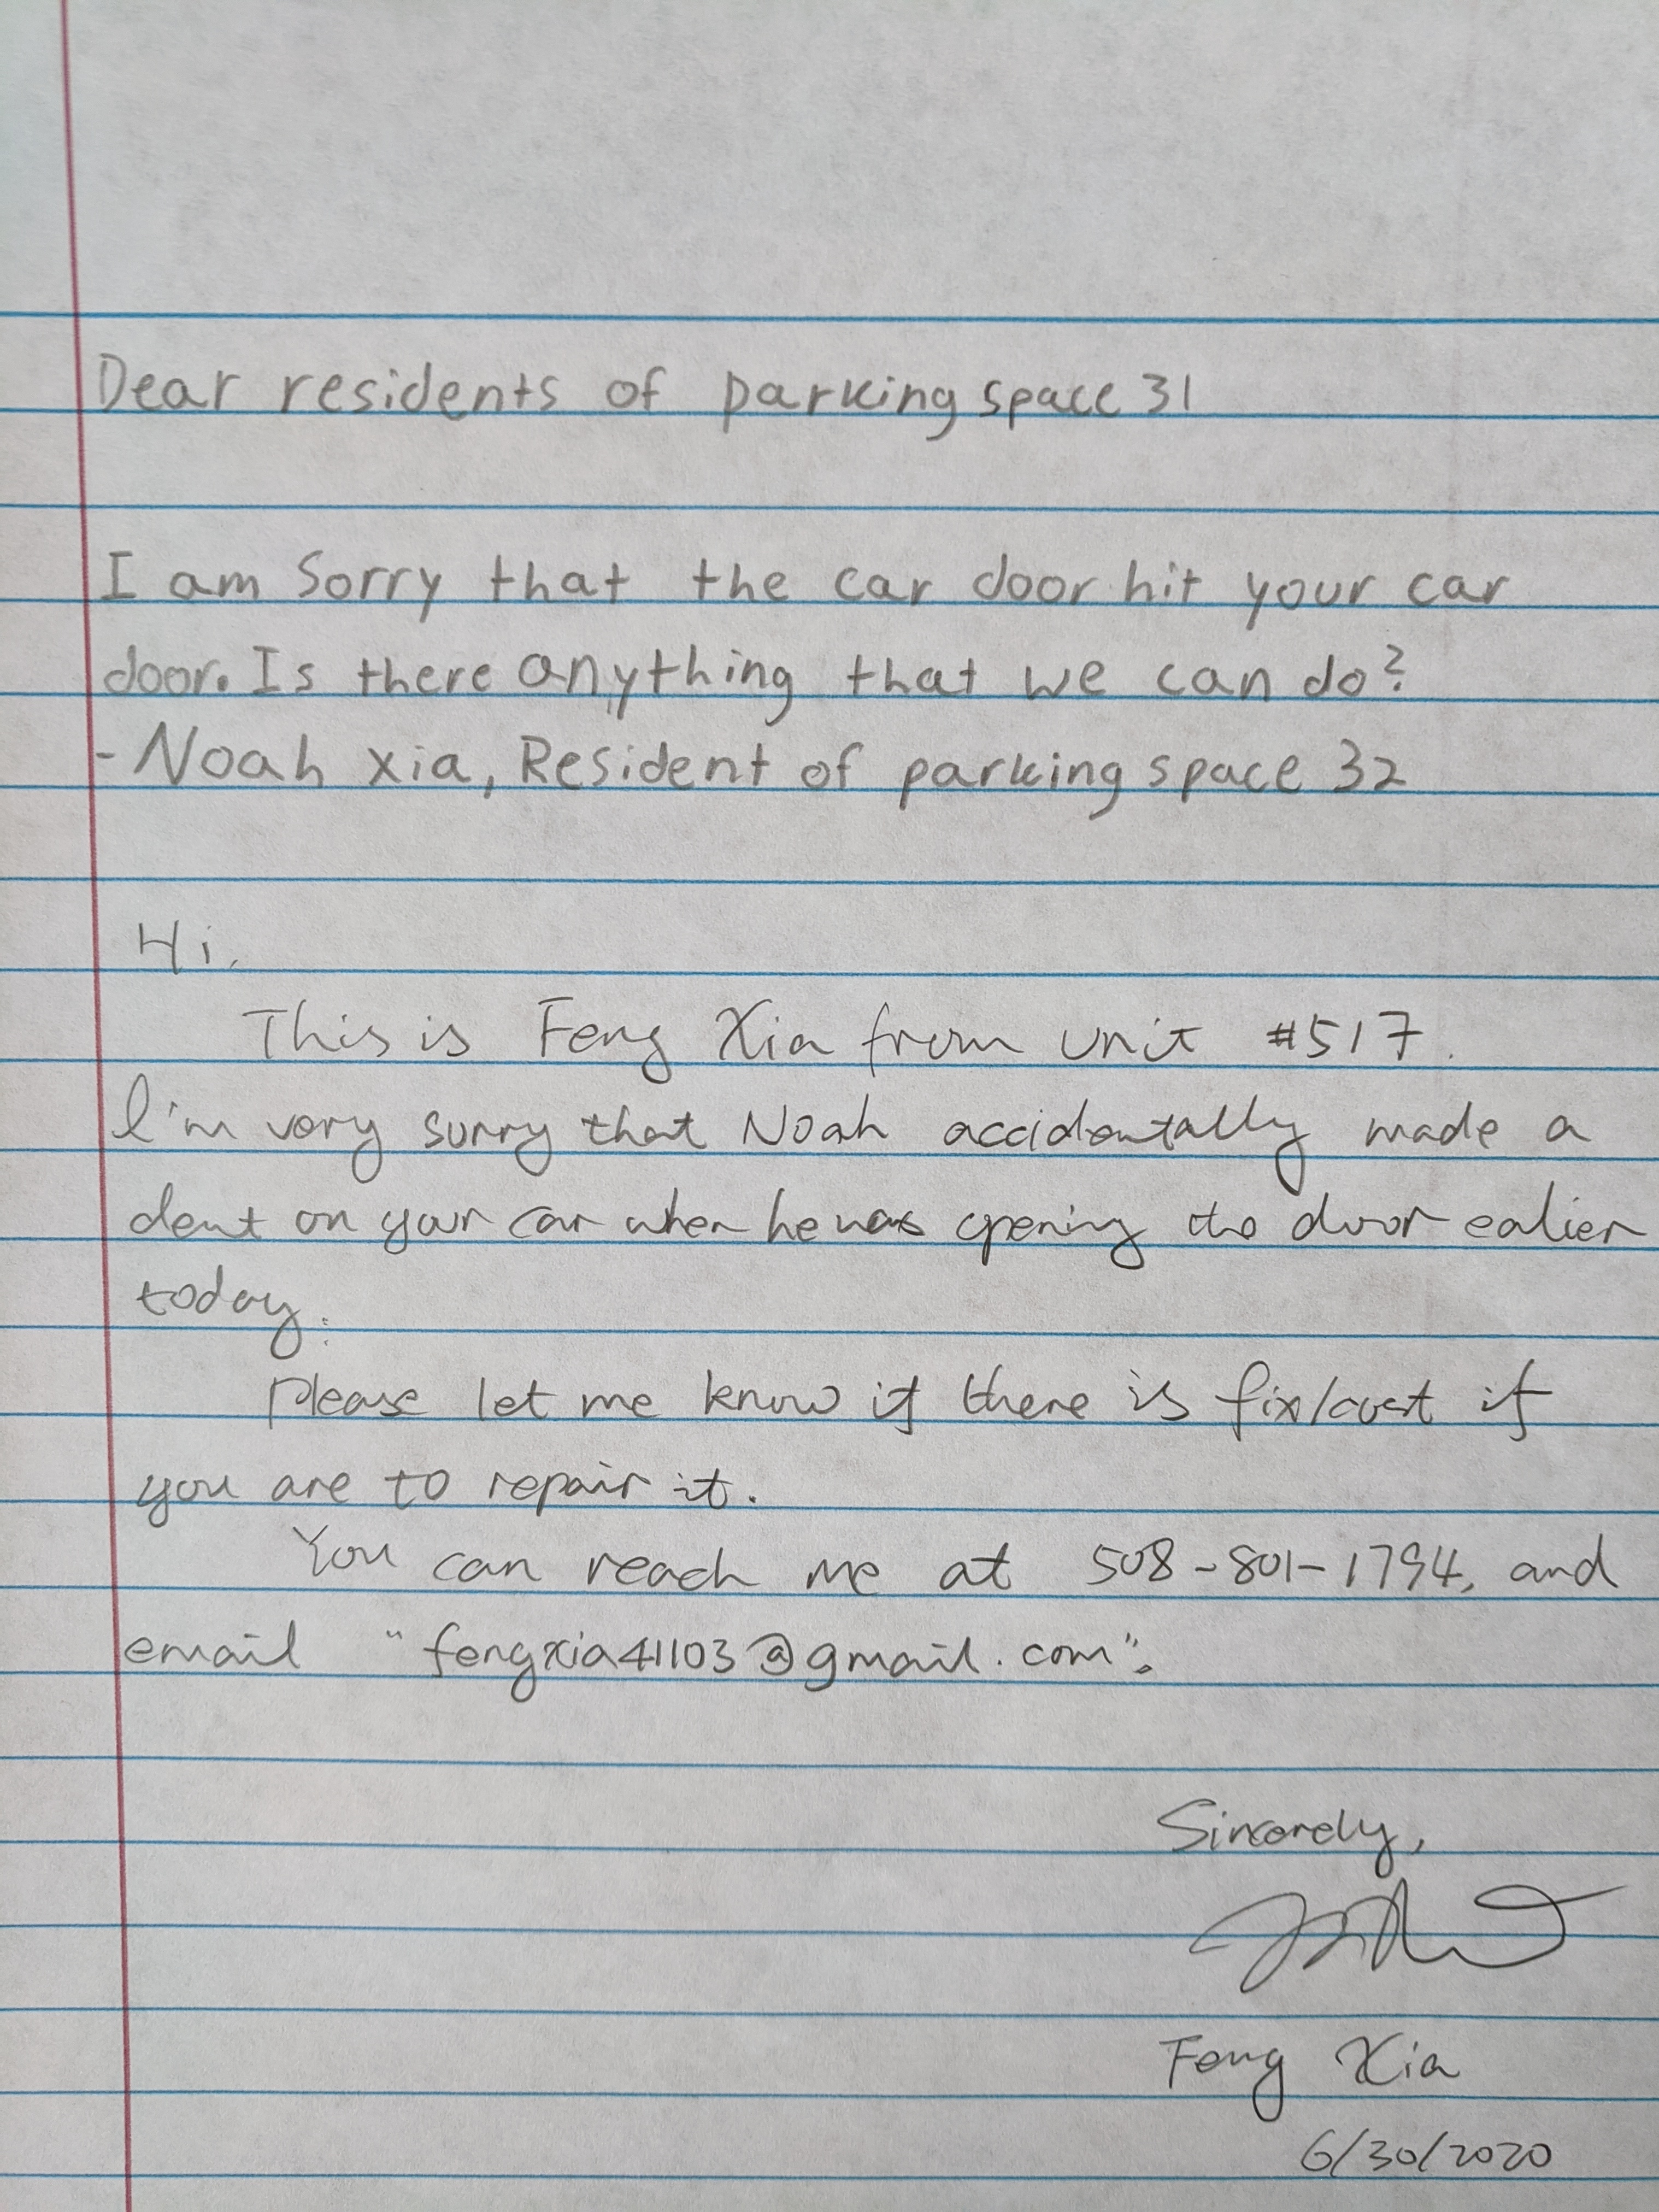 Dear residents of parking space 31
I am sorry that the car door hit your car
door. Is there anything that we can do?
- Noah Xia, Resident of parking space 32
Hi,
This is Feng Xia from unit #517.
I'm very sorry that Noah accidentally made a
dent on your car when he was opening the door ealier
today.
Please let me know if there is fix/cost if
you are to repair it.
You can reach me at 508-801-1794, and
email "fengxia41103@gmail.com".
Sincerely,
Feng Xia
6/30/2020